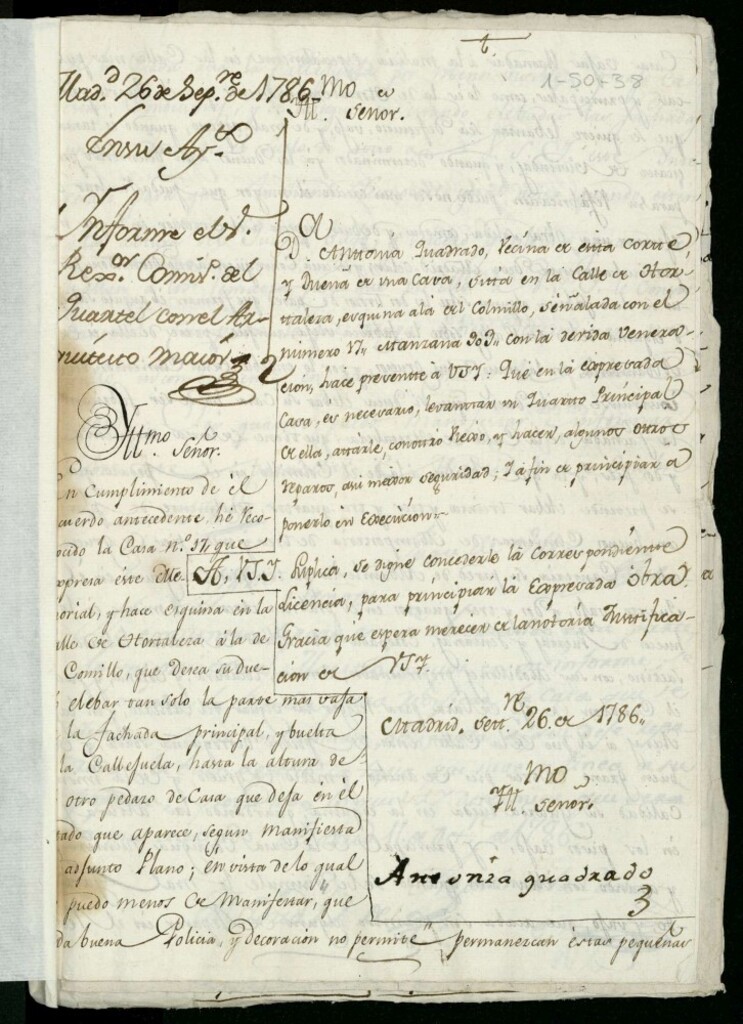 1-50-38
Mad.d 26 de Sep.re de 1786
En su Ay.to
Informe el S.r
Rex.or Comis.o del
Quartel con el Ar-
quitecto maior
Ill.mo Señor.
D.a Antonia Quadrado, Vecina de esta Corte
y Dueña de una Casa, sitta en la Calle de Hor-
taleza, esquina a la del Colmillo, señalada con el
numero 17,, Manzana con la devida Venera-
cion, hace presentte à VSY: Que en la expresada
Casa, es necesario, levanttar un Quartto Principal
de ella, con ottro y hacer, algunos ottros
reparos, seguridad; Y a fin de principiar à
ponerlo en Execucion
A. VSY. Suplica, se digne concederle la correspondientte
Licencia, para principiar la Expresada Obra;
Gracia que espera merecer de la nottoria Justtifica-
cion de VSY.
Madrid. Sett.re 26. de 1786,,
Ill.mo Señor.
Antonia quadrado
Ill.mo Señor.
En Cumplimiento de el
acuerdo antecedente, hé reco-
nocido la Casa n.o 17, que
expresa este Me-
morial, y hace esquina en la
Calle de Hortaleza à la de
Comillo, que desea su due-
elebar tan solo la parte mas vasa
la fachada principal, y buelta
la Callejuela, hasta la altura de
otro pedazo de Casa que deja en él
estado que aparece, segun manifiesta
adjunto Plano; en vista de lo qual
puedo menos de Manifestar, que
buena Policia, y decoracion no permite permanezcan estas pequeñas